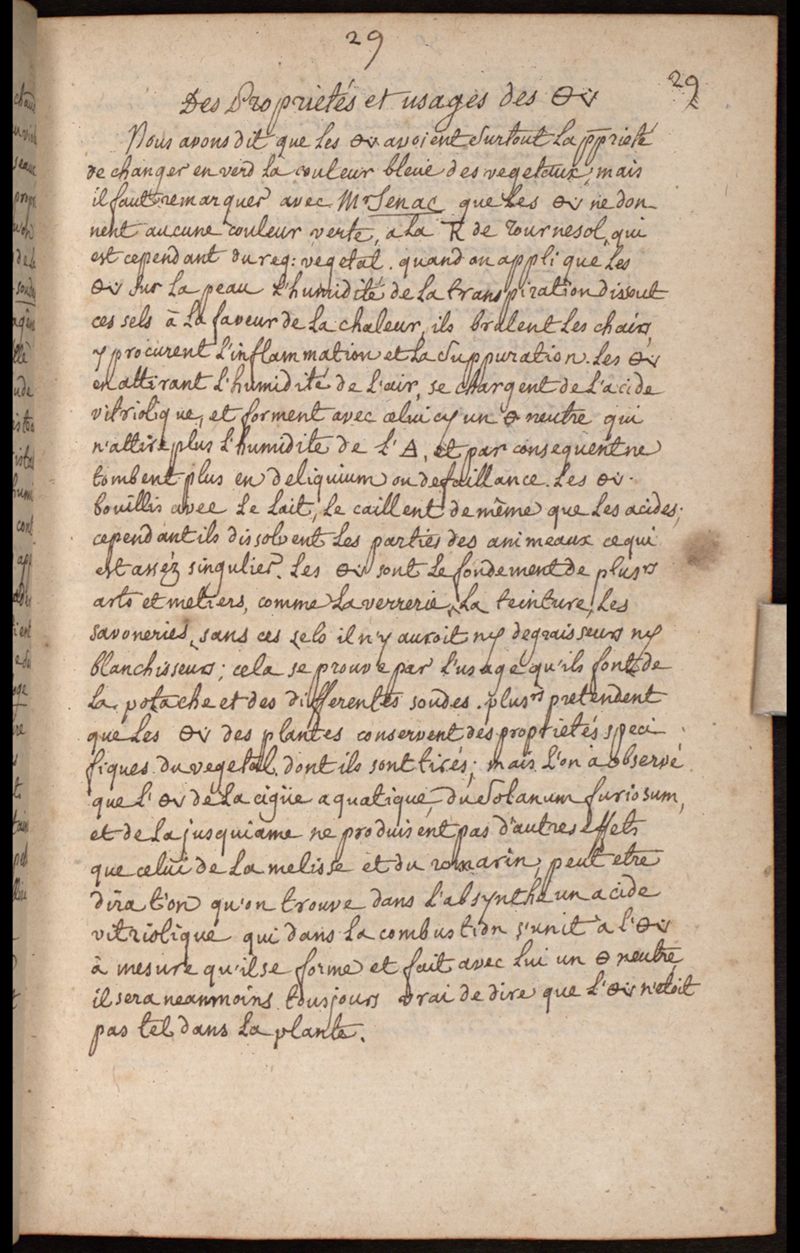 29
29
Des Proprietés et usages des 🜔🜋
Nous avons dit que les 🜔🜋 avoient surtout la pprieté
de changer en verd la couleur bleuë des vegetaux; mais
il faut remarquer avec Mr Senac que les 🜔🜋 ne don
nent aucune couleur verte, a la R de tournesol, qui
est cependant du reg: vegetal. quand on applique les
🜔🜋 sur la peau l'humidité de la transpiration dissout
ces sels à la faveur de la chaleur, ils brulent les chairs,
y procurent l'inflammation et la suppuration. les 🜔🜋
en attirant l'humidité de l'air, se chargent de l'acide
vitriolique, et forment avec celui cy un 🜔 neutre qui
n'attire plus l'humidité de l'🜁, et par consequent ne
tombent plus en deliquium ou defaillance. Les 🜔🜋.
bouillis avec le lait, le caillent de même que les acides;
cependant ils dissolvent les parties des animeaux ce qui
est asséz singulier. Les 🜔🜋 sont le fondement de plusrs
arts et metiers, comme la verrerie, la teinture, les
savoneries, sans ces sels il n'y auroit ny degraisseurs ny
blanchisseurs; cela se prouve par l'usage qu'ils font de
la potache et des differentes soudes. plusrs pretendent
que les 🜔🜋 des plantes conservent des proprietés speci
fiques du vegetal dont ils sont tirés; mais l'on a observé
que l'🜔🜋 de la cigüe aquatique, du solanum furiosum,
et de la jusquiame ne produisent pas d'autres effets
que celui de la melisse et du romarin, peut etre
dira t'on qu'on trouve dans l'absynthe un acide
vitriolique qui dans la combustion s'unit à l'🜔🜋
à mesure qu'il se forme et fait avec lui un 🜔 neutre
il sera neanmoins tousjours vrai de dire que l'🜔🜋 n'etoit
pas tel dans la plante.